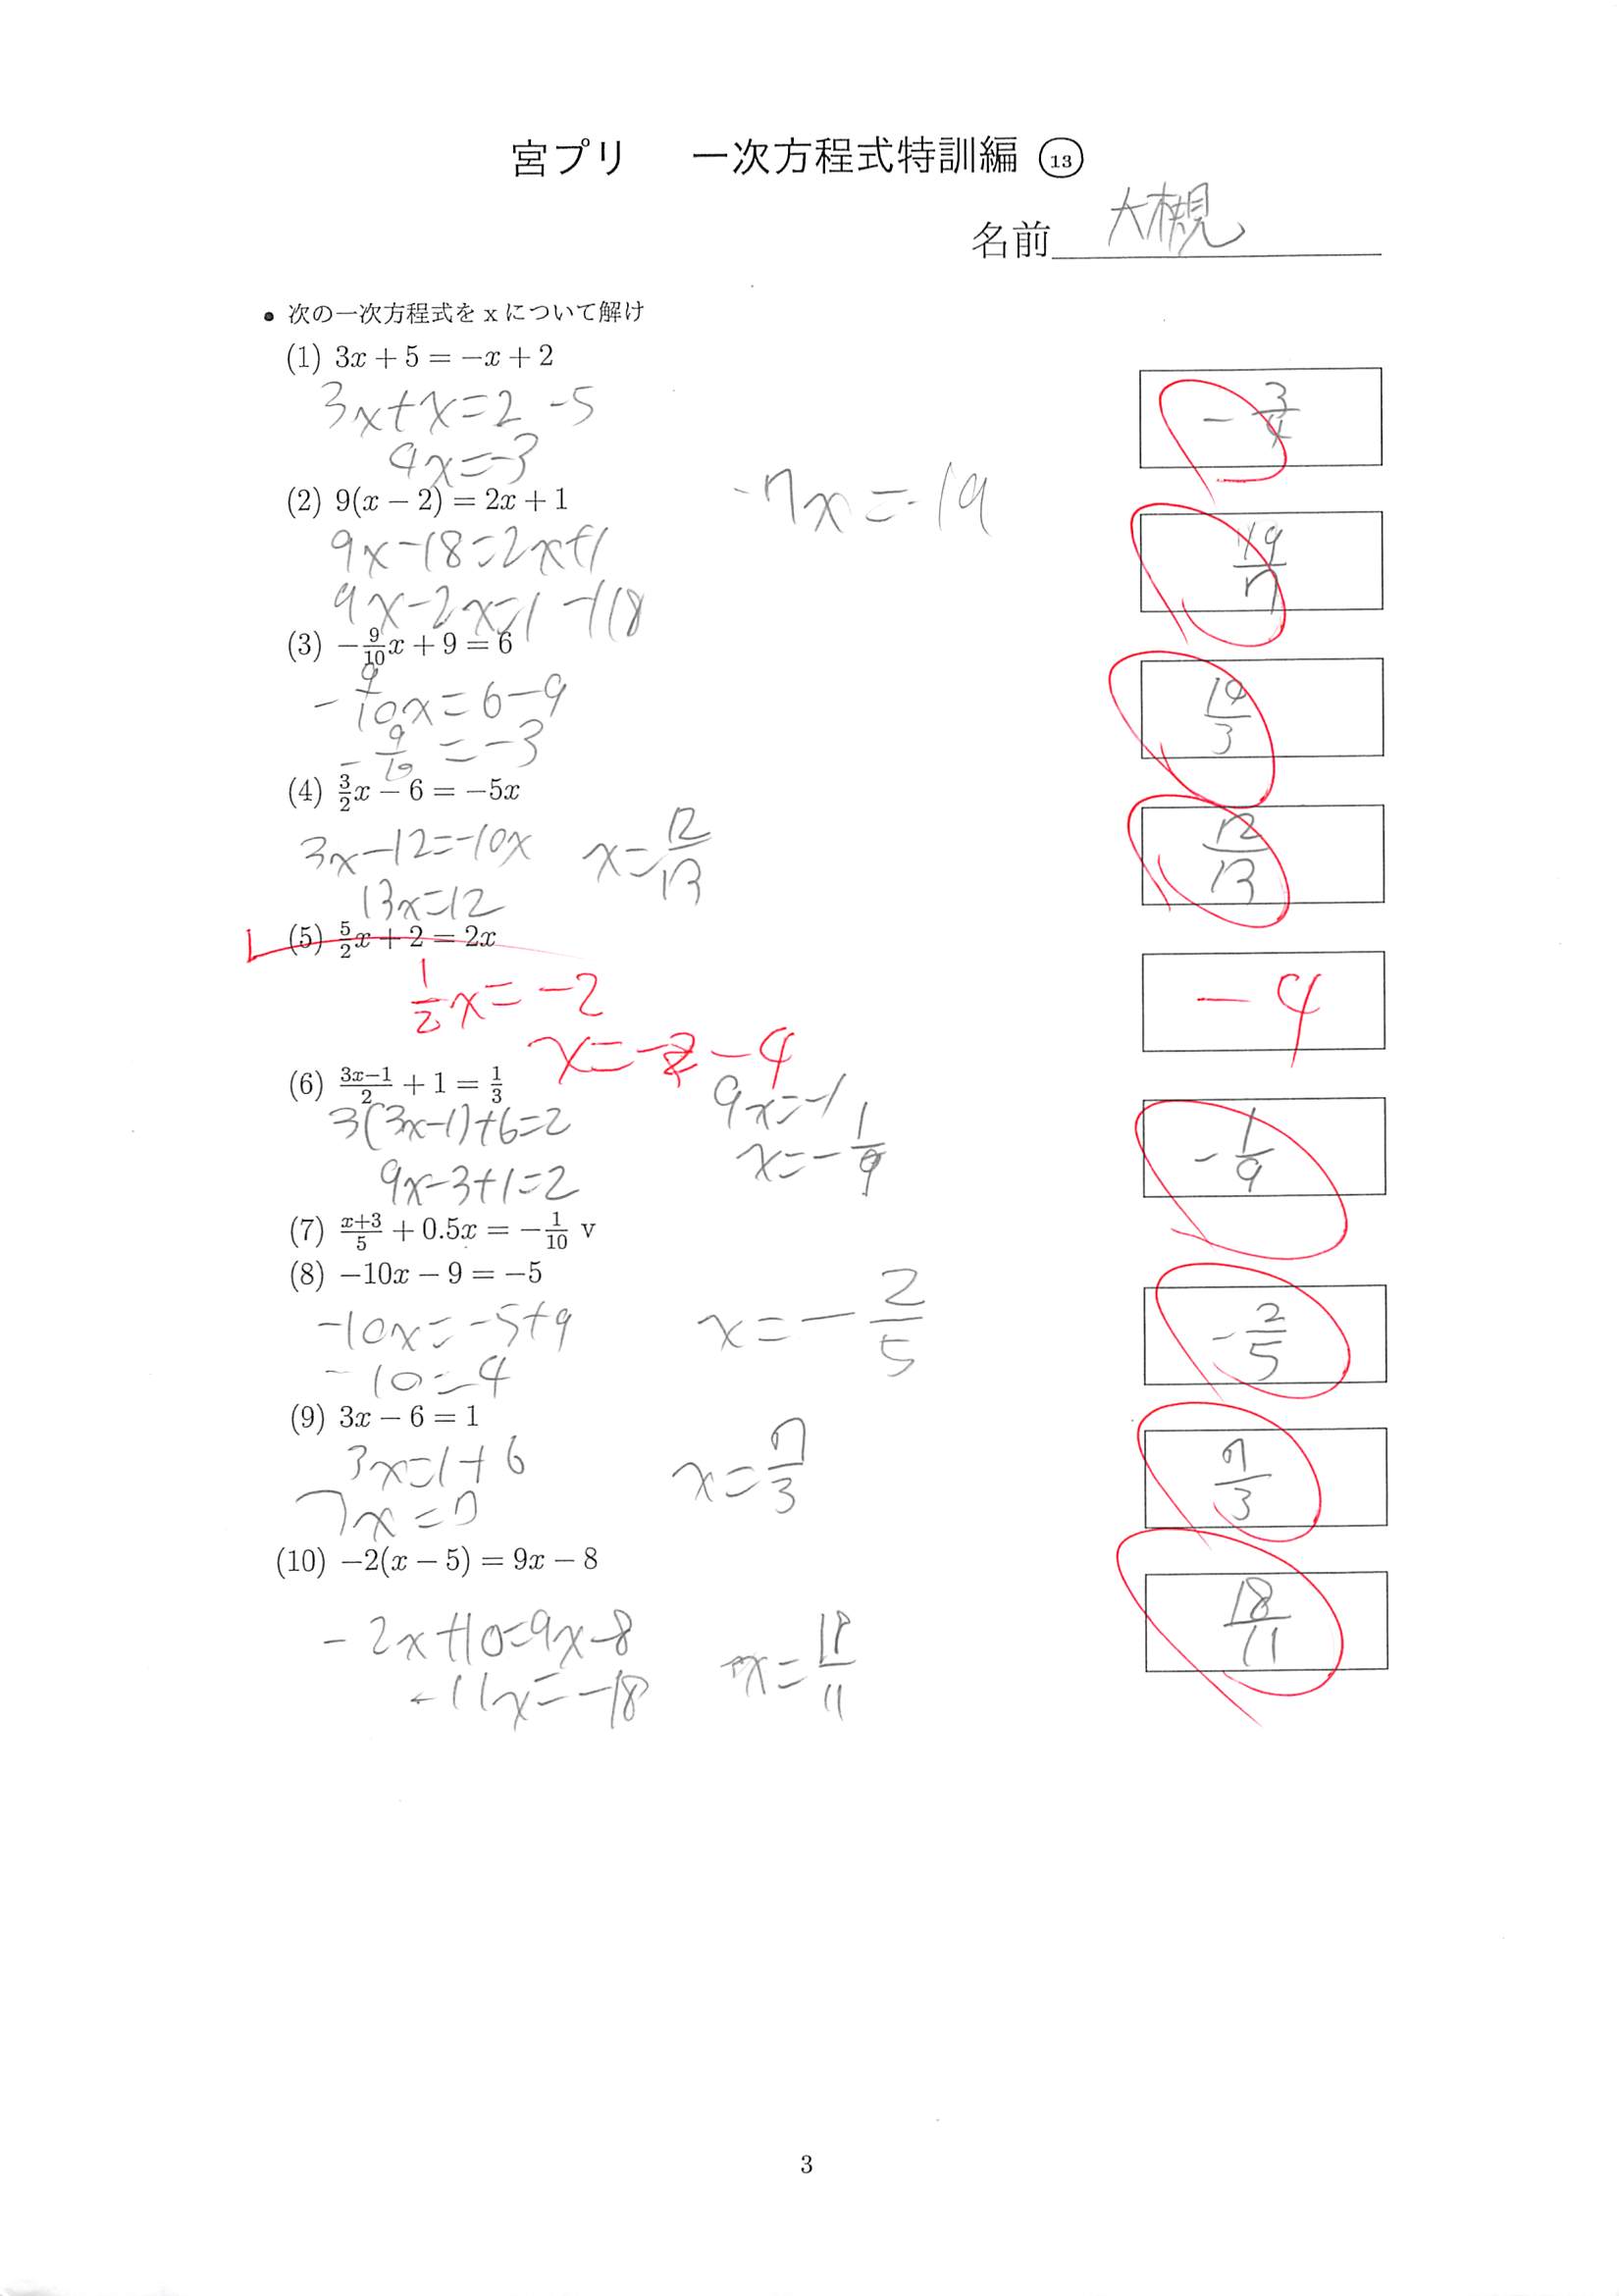 宮プリ 一次方程式特訓編 ⑬
名前 大槻
• 次の一次方程式を x について解け
(1) 3x + 5 = −x + 2
3x+x=2-5
4x=-3
-3/4
(2) 9(x − 2) = 2x + 1
-7x=-19
9x-18=2x+1
9x-2x=1+18
19/7
(3) −9/10x + 9 = 6
-9/10x=6-9
-9/10=-3
10/3
(4) 3/2x − 6 = −5x
3x-12=-10x
x=12/13
13x=12
12/13
(5) 5/2x + 2 = 2x
1/2x=-2
x= -4
-4
(6) (3x−1)/2 + 1 = 1/3
3(3x-1)+6=2
9x=-1
9x-3+1=2
x=-1/9
-1/9
(7) (x+3)/5 + 0.5x = −1/10 v
(8) −10x − 9 = −5
-10x=-5+9
x=-2/5
-10=4
-2/5
(9) 3x − 6 = 1
3x=1+6
x=7/3
7x=7
7/3
(10) −2(x − 5) = 9x − 8
-2x+10=9x-8
x=18/11
-11x=-18
18/11
3